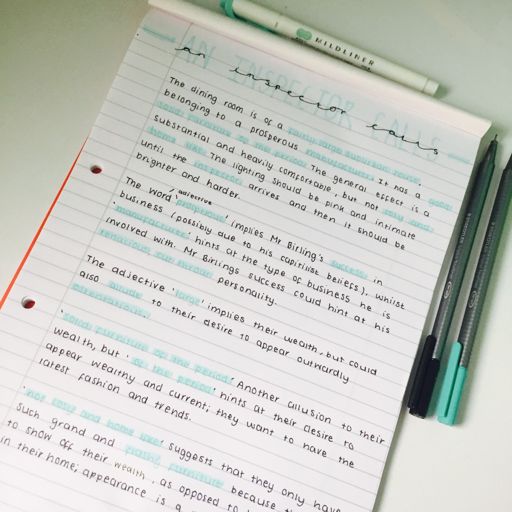 MILDLINER
AN INSPECTOR CALLS
an inspector calls
The dining room is of a fairly large suburban house,
belonging to a prosperous manufacturer. It has a good
solid furniture of the period. The general effect is a
substantial and heavily comfortable, but not cosy and
home like. The lighting should be pink and intimate
until the inspector arrives and then it should be
brighter and harder.
adjective
The word 'prosperous' implies Mr Birling's success in
business (possibly due to his capitilist beliefs), whilst
'manufacturer' hints at the type of business he is
involved with. Mr Birlings success could hint at his
personality.
The adjective 'large' implies their wealth, but could
also allude to their desire to appear outwardly
ostentatious.
'solid furniture of the period'. Another allusion to their
wealth, but 'of the period' hints at their desire to
appear wealthy and current; they want to have the
latest fashion and trends.
'not cosy and home like' suggests that they only have
such grand and flashy furniture because
to show off their wealth, as opposed to
in their home; appearance is a